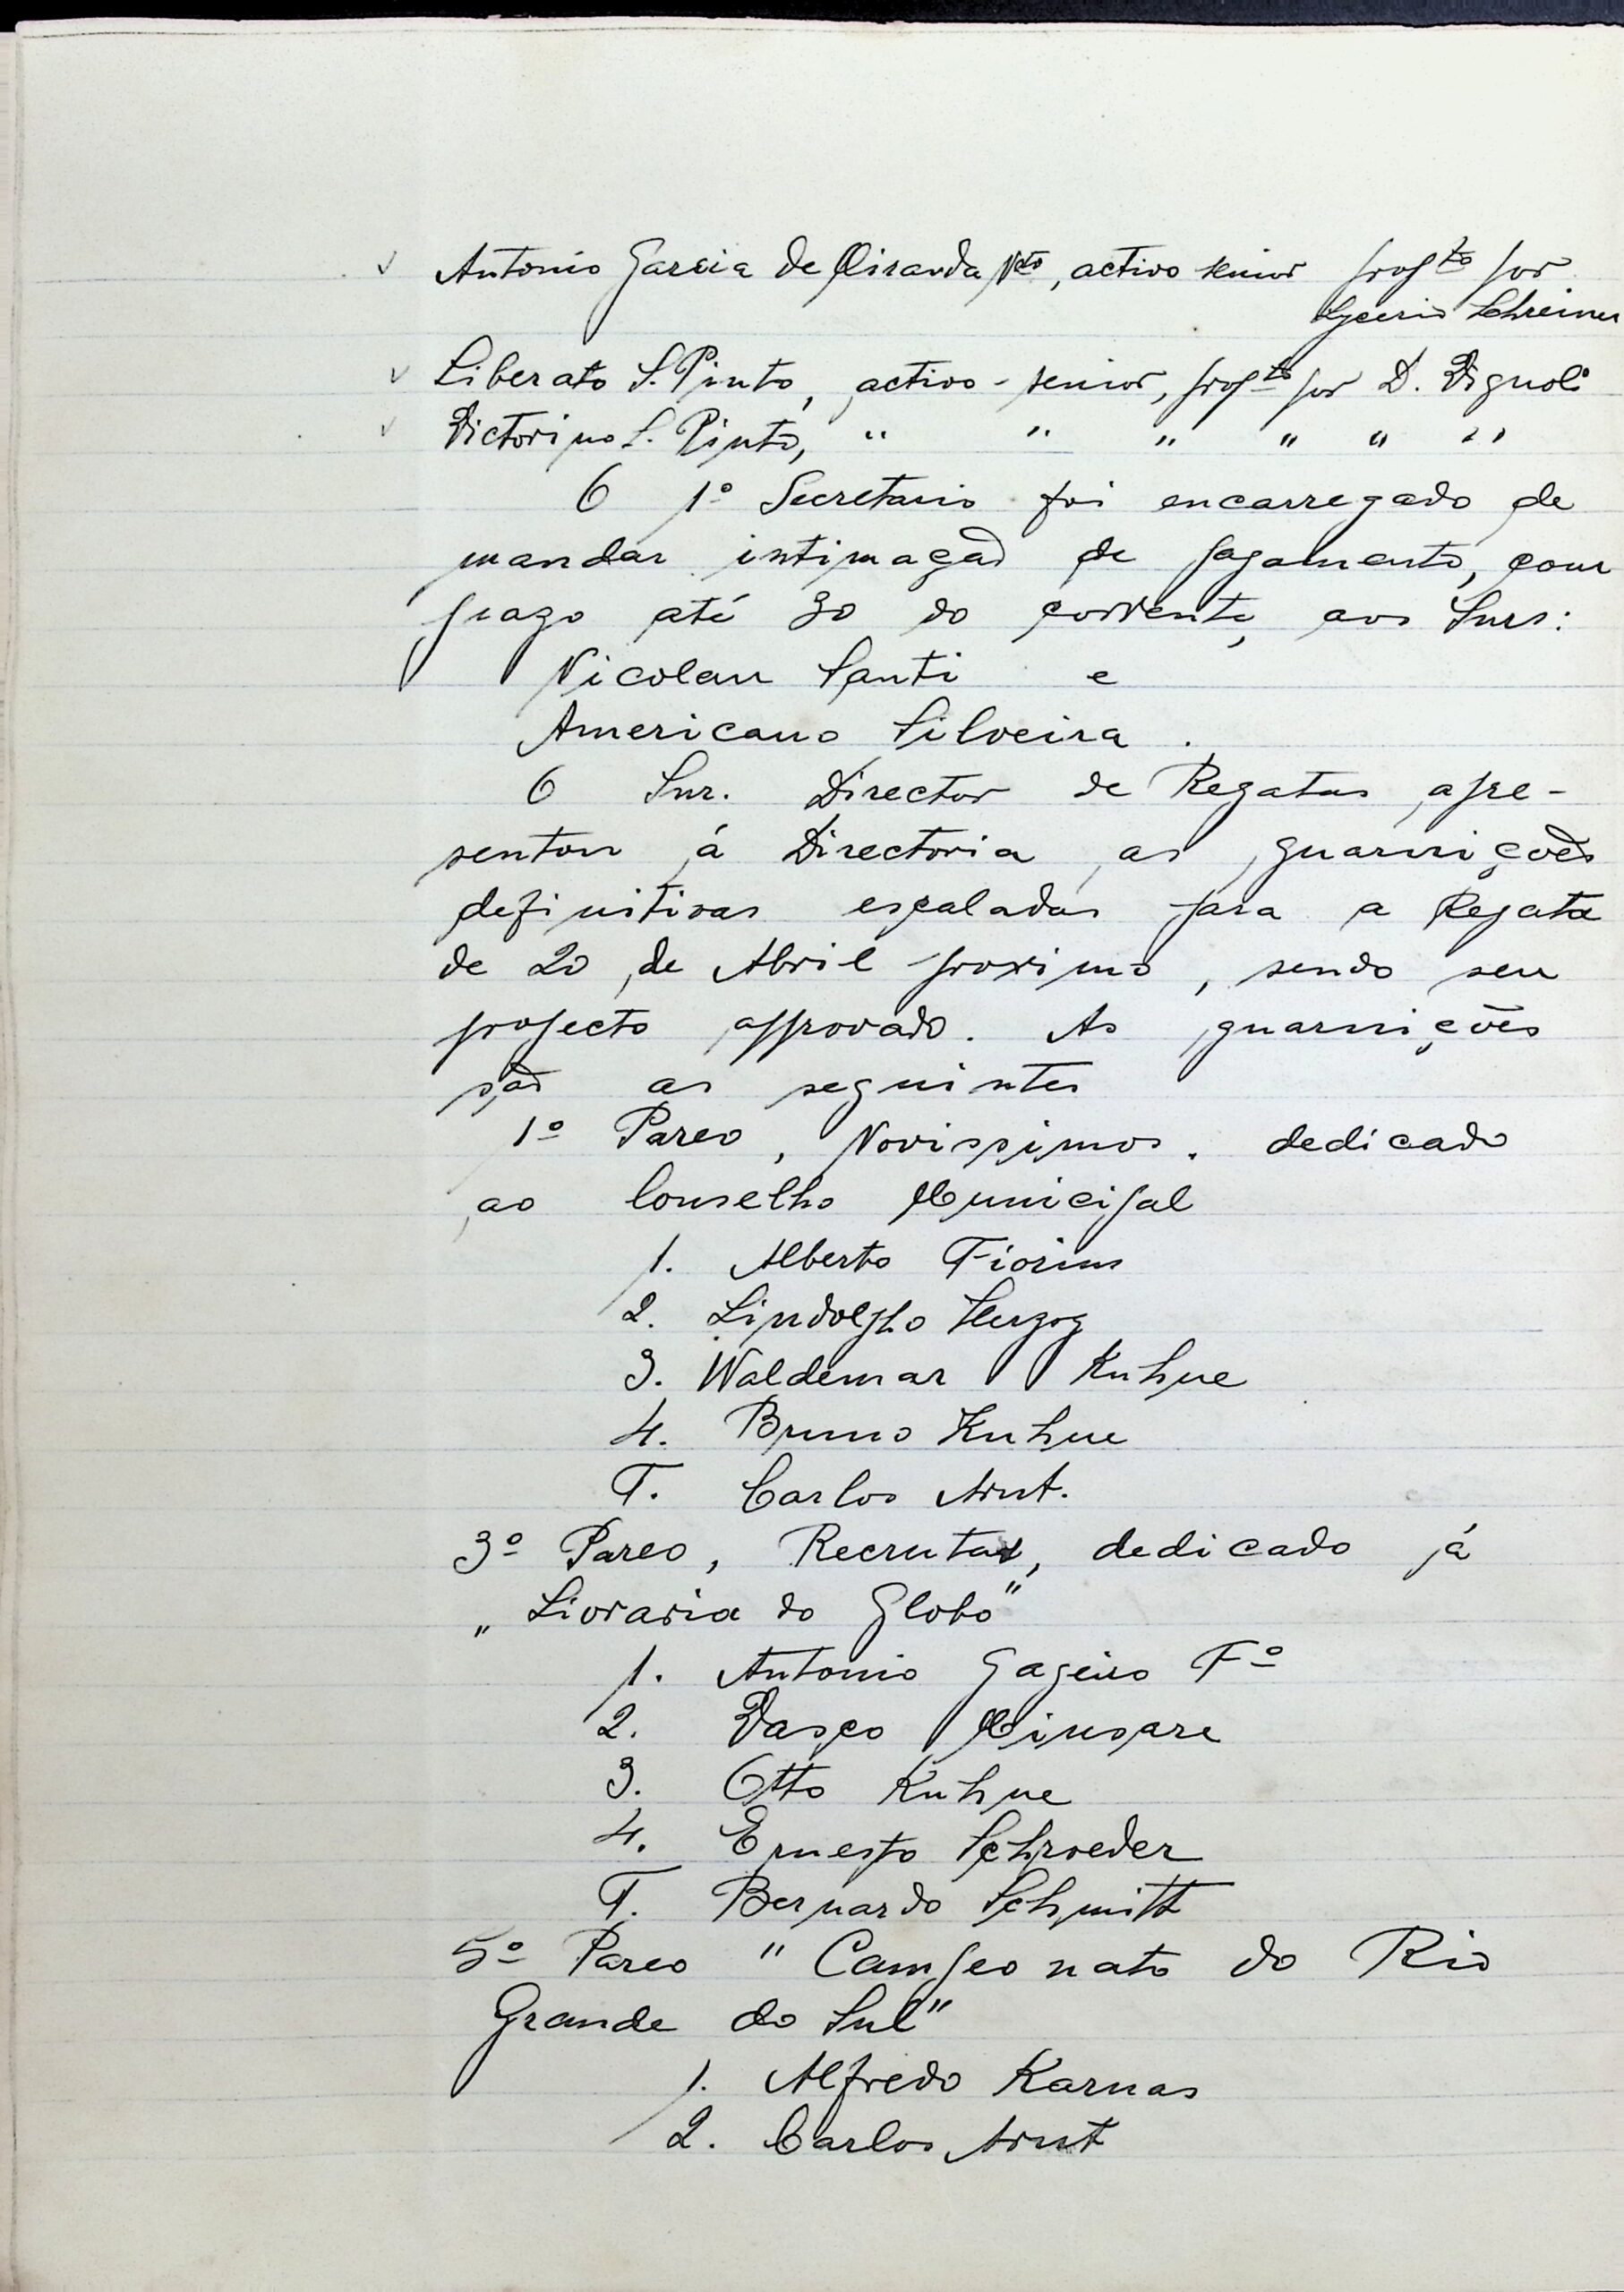 ✓ Antonio Garcia de Miranda Nto, activo senior propto por
Glycerio Schreiner
✓ Liberato S. Pinto, activo-senior, propto por D. Vignoli
✓ Victorino S. Pinto, " " " " " "
O 1º Secretario foi encarregado de
mandar intimação de pagamento, com
prazo até 30 do corrente, aos Snrs:
Nicolau Santi e
Americano Silveira.
O Snr. Director de Regatas apre-
sentou á Directoria as guarnições
definitivas escaladas para a Regata
de 20 de Abril proximo, sendo seu
projecto approvado. As guarnições
são as seguintes
1º Pareo, Novissimos. dedicado
ao Conselho Municipal
1. Alberto Fiorini
2. Lindolpho Herzog
3. Waldemar Kuhne
4. Bruno Kuhne
T. Carlos Arnt.
3º Pareo, Recrutas, dedicado á
„Livraria do Globo"
1. Antonio Gageiro Fº
2. Vasco
3. Otto Kuhne
4. Ernesto Schroeder
T. Bernardo Schmitt
5º Pareo "Campeonato do Rio
Grande do Sul"
1. Alfredo Karnas
2. Carlos Arnt